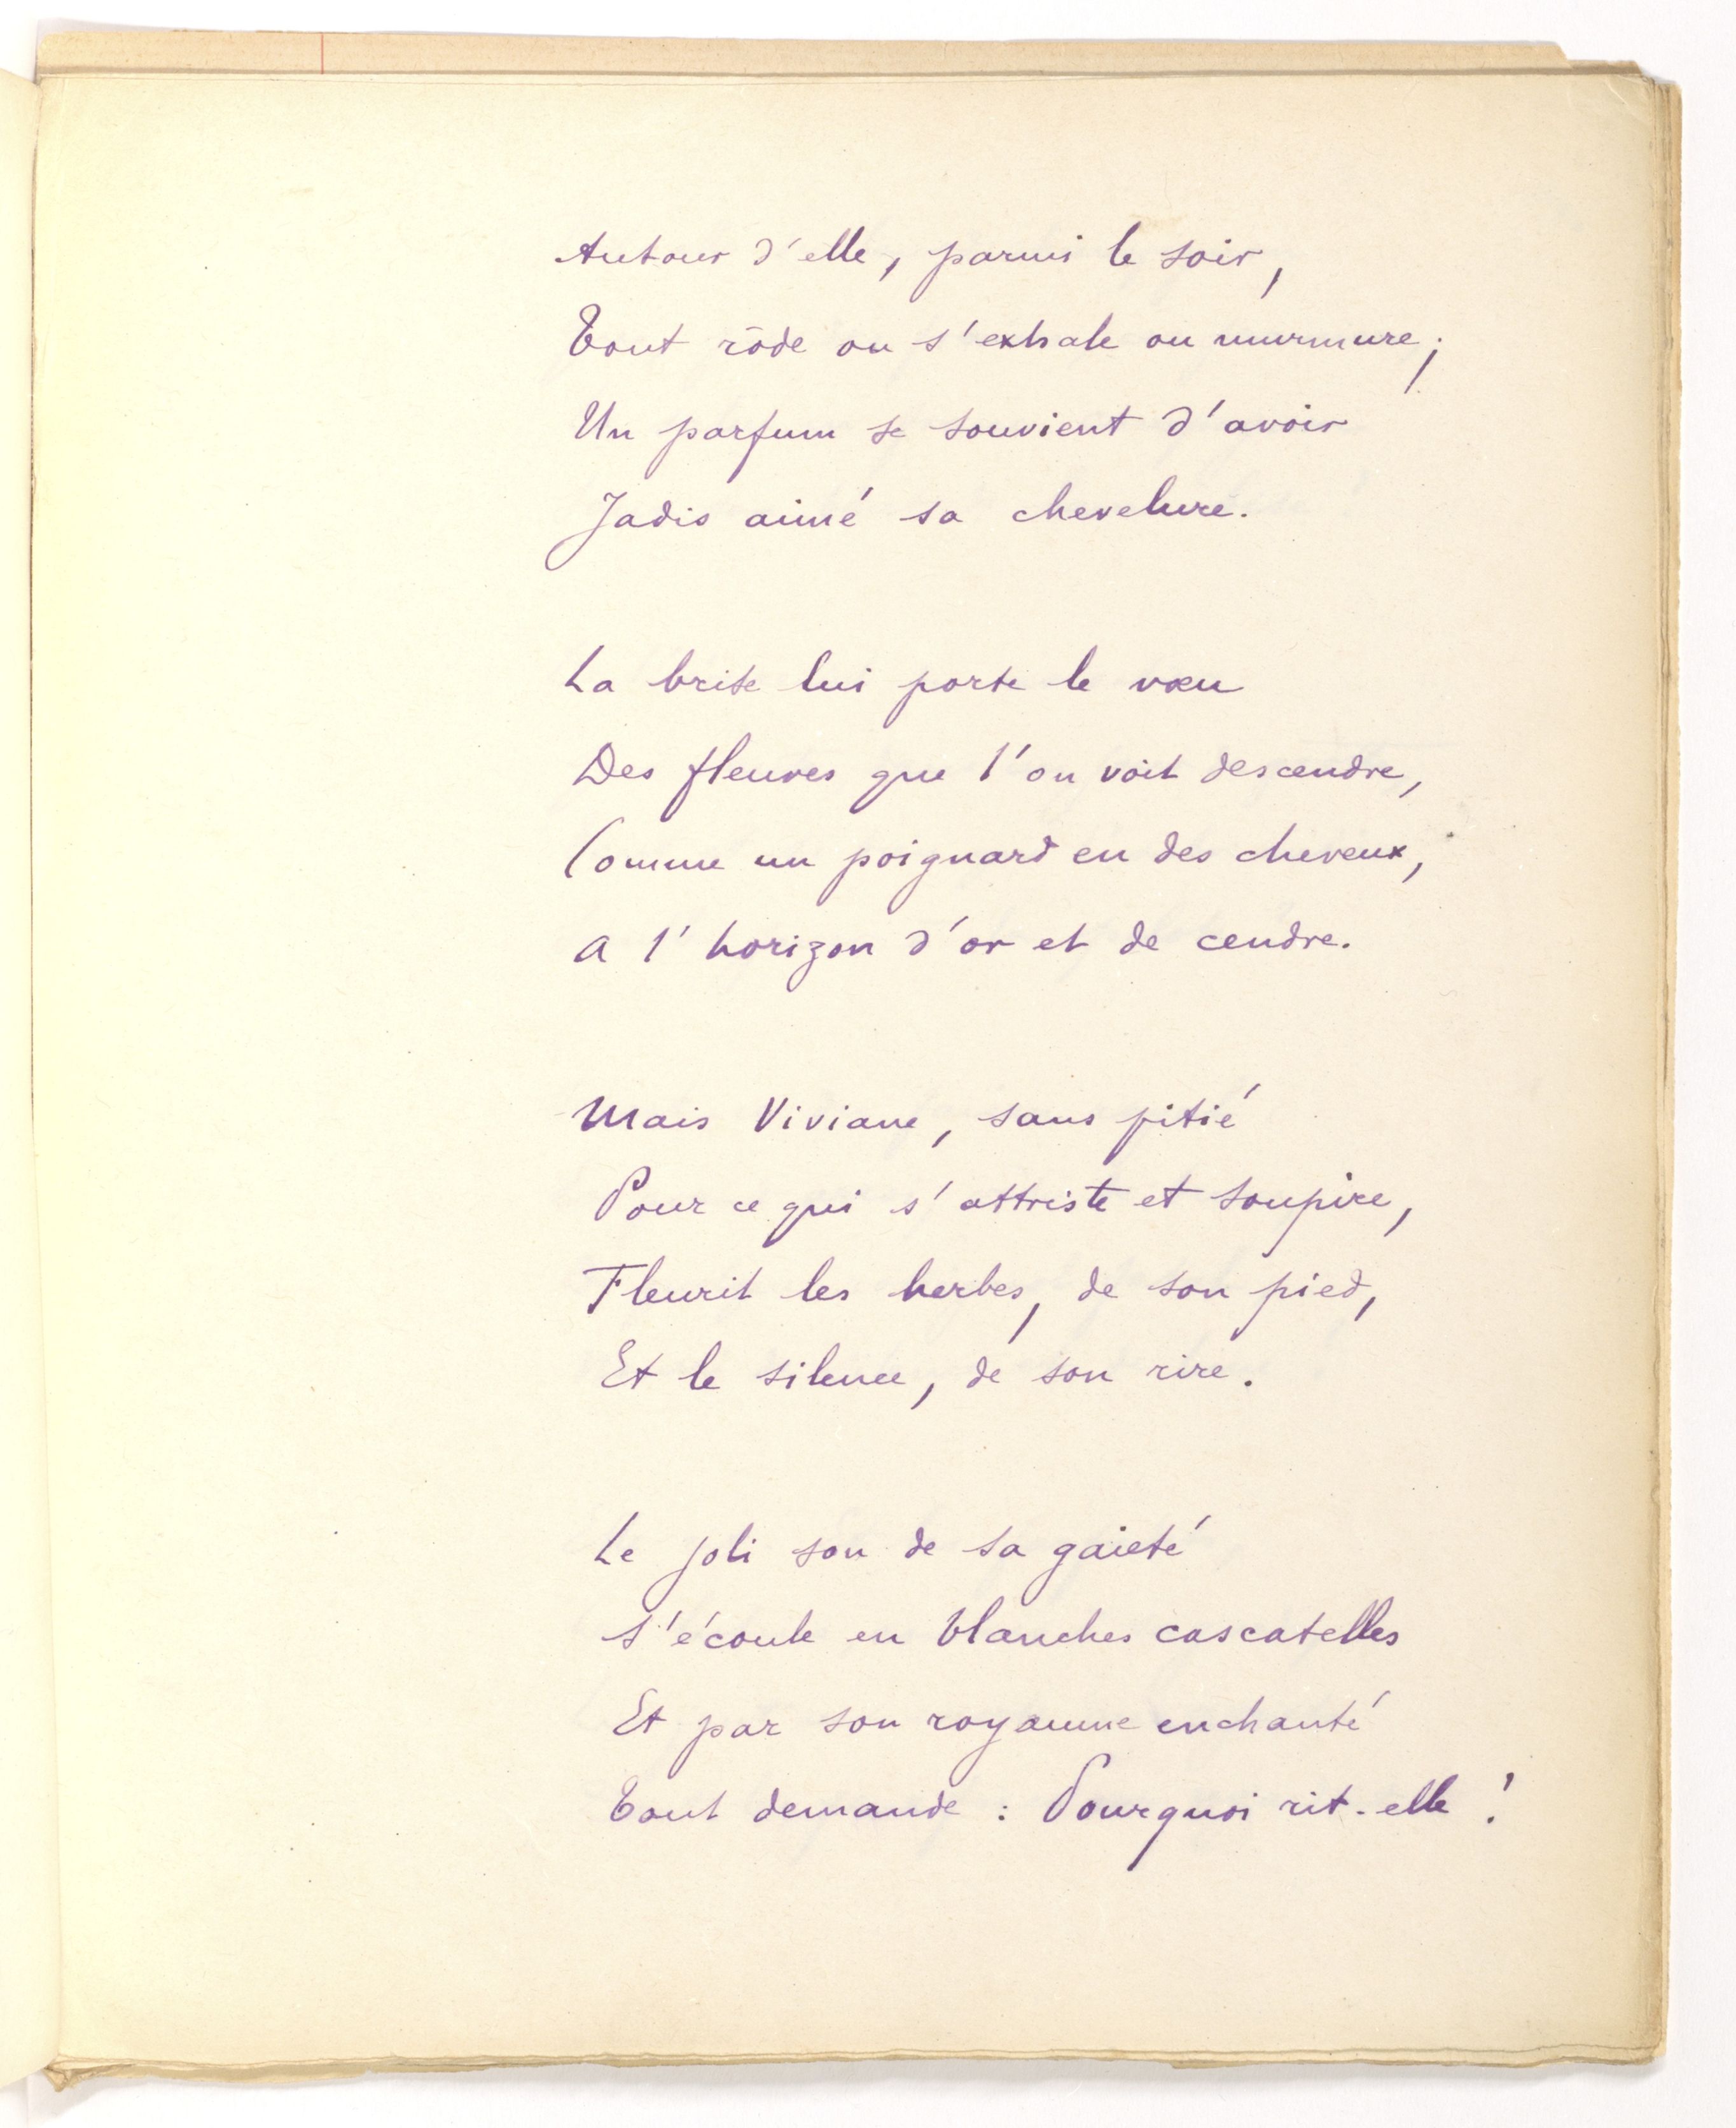 Autour d'elle, parmi le soir,
Tout rôde ou s'exhale ou murmure ;
Un parfum se souvient d'avoir
Jadis aimé sa chevelure.
La brise lui porte le vœu
Des fleuves que l'on voit descendre,
Comme un poignard en des cheveux,
A l'horizon d'or et de cendre.
Mais Viviane, sans pitié
Pour ce qui s'attriste et soupire,
Fleurit les herbes, de son pied,
Et le silence, de son rire.
Le joli son de sa gaieté
S'écoule en blanches cascatelles
Et par son royaume enchanté
Tout demande : Pourquoi rit-elle !